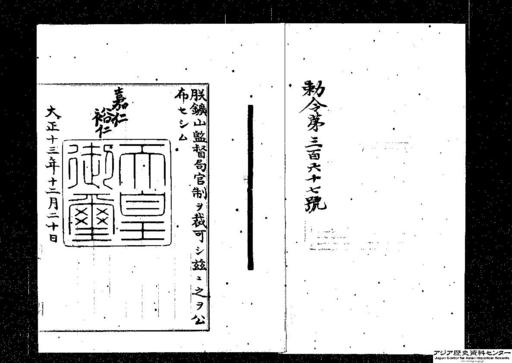 勅令第三百六十七號
朕鑛山監督局官制ヲ裁可シ茲ニ之ヲ公
布セシム
嘉仁
裕仁
天皇
御璽
大正十三年十二月二十日
アジア歴史資料センター
Japan Center for Asian Historical Records